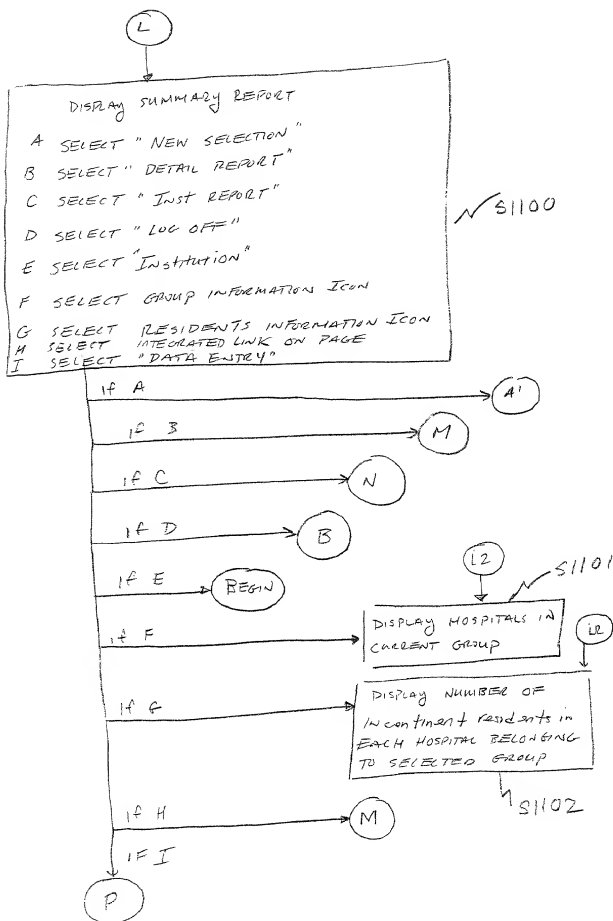 L
DISPLAY SUMMARY REPORT
A SELECT "NEW SELECTION"
B SELECT "DETAIL REPORT"
C SELECT "INST REPORT"
D SELECT "LOG OFF"
E SELECT "Institution"
F SELECT GROUP INFORMATION ICON
G SELECT RESIDENTS INFORMATION ICON
H SELECT INTEGRATED LINK ON PAGE
I SELECT "DATA ENTRY"
S1100
if A
A'
if B
M
if C
N
if D
B
if E
BEGIN
L2
S1101
if F
DISPLAY HOSPITALS IN
CURRENT GROUP
if G
DISPLAY NUMBER OF
Incontinent residents in
EACH HOSPITAL BELONGING
TO SELECTED GROUP
S1102
if H
M
IF I
P